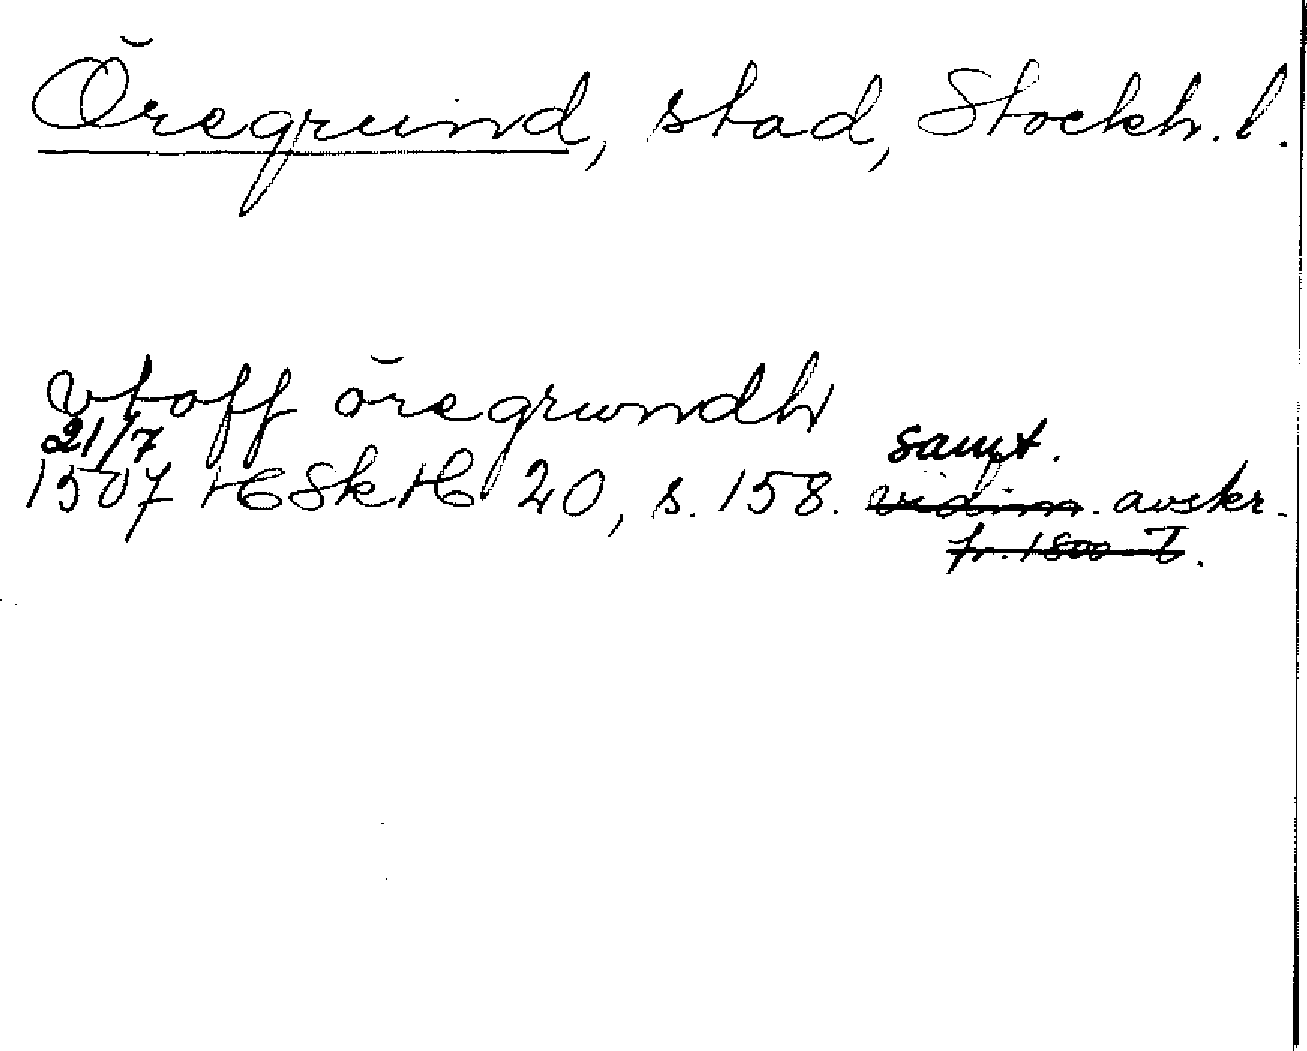 Öregrund, stad, Stockh. l.
vtoff öregrundh
21/7
1507 HSkH 20, s. 158. vidim. avskr.
samt.
fr. 1800-t.